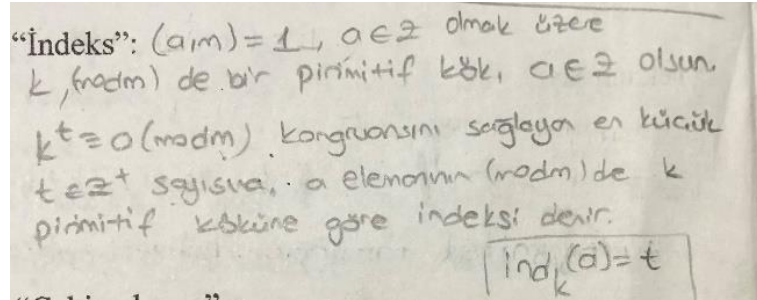 “İndeks”: (a,m)=1, a∈Z olmak üzere
k, (modm) de bir pirimitif kök, a∈Z olsun.
k^t≡a(modm) kongruansını sağlayan en küçük
t∈Z⁺ sayısına, a elemanının (modm)de k
pirimitif köküne göre indeksi denir.
ind_k(a)=t